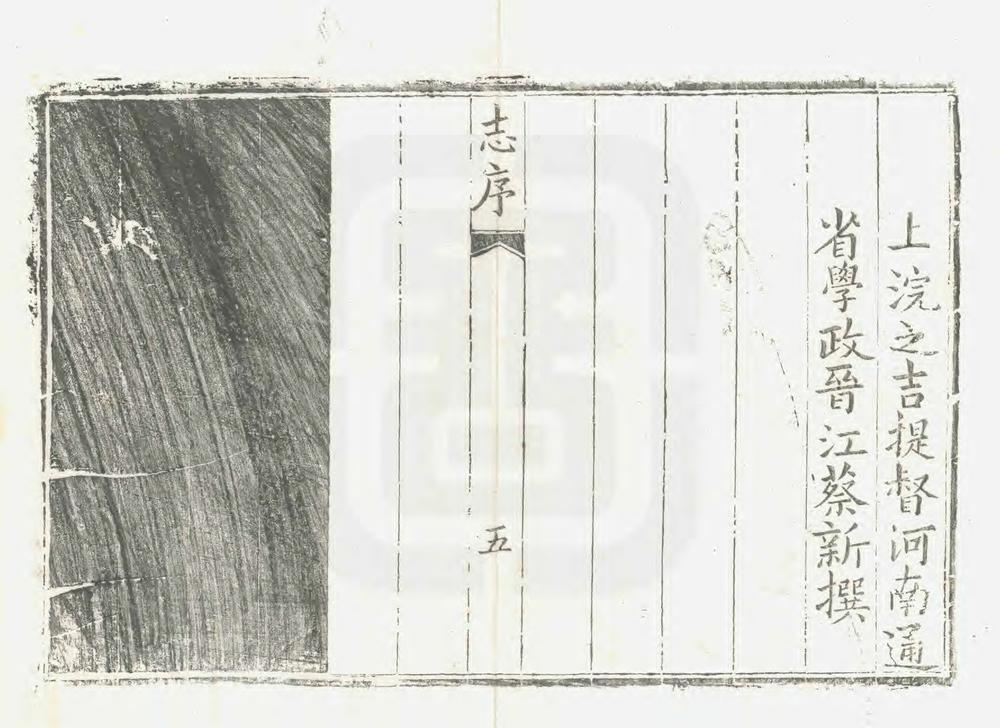 上浣之吉提督河南通
省學政晉江蔡新撰
志序
五